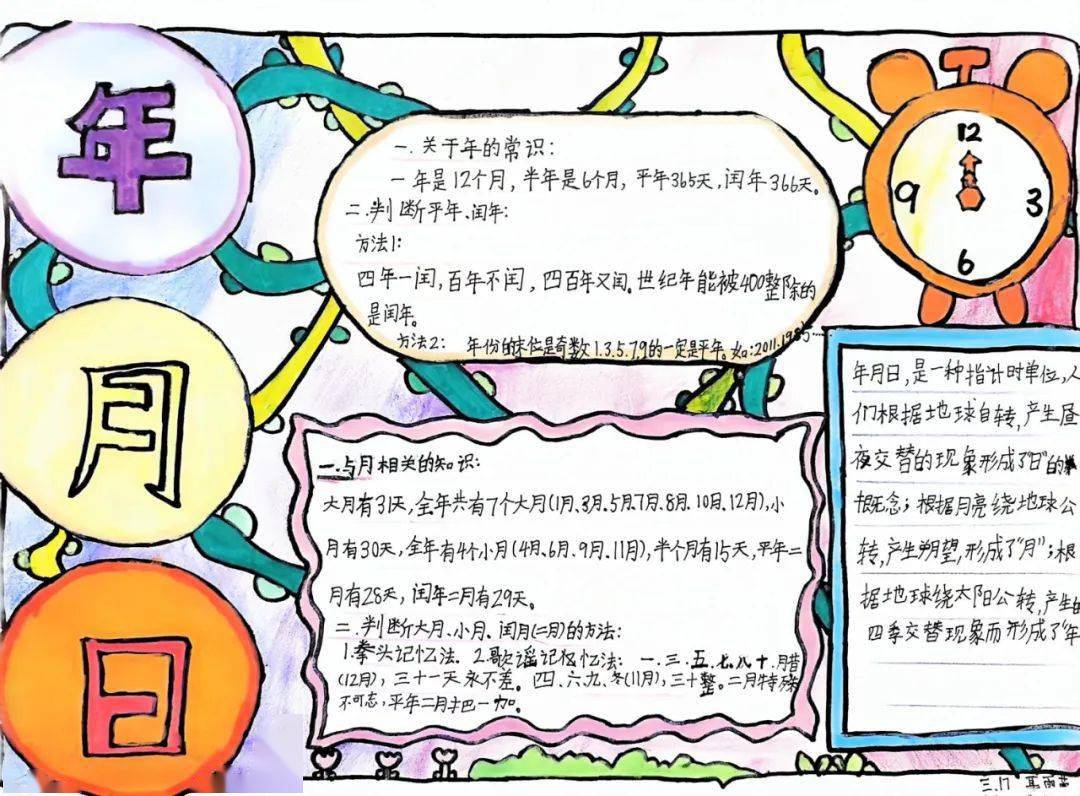 年
月
日
一.关于年的常识:
一年是12个月,半年是6个月,平年365天,闰年366天。
二.判断平年、闰年:
方法1:
四年一闰,百年不闰,四百年又闰。世纪年能被400整除的
是闰年。
方法2: 年份的末位是奇数1.3.5.7.9的一定是平年。如:2011.1985……
12
9
3
6
一.与月相关的知识:
大月有31天,全年共有7个大月(1月、3月、5月、7月、8月、10月、12月),小
月有30天,全年有4个小月(4月、6月、9月、11月),半个月有15天,平年二
月有28天,闰年二月有29天。
二.判断大月、小月、闰月(二月)的方法:
1.拳头记忆法. 2.歌谣记忆法: 一.三.五.七.八.十.月昔
(12月),三十一天永不差。四、六、九、冬(11月),三十整。二月特殊
不可忘,平年二月
年月日,是一种指计时单位,人
们根据地球自转,产生昼
夜交替的现象形成了"日"的
概念;根据月亮绕地球公
转,产生朔望,形成了"月";根
据地球绕太阳公转,产生的
四季交替现象而形成了"年
三.17